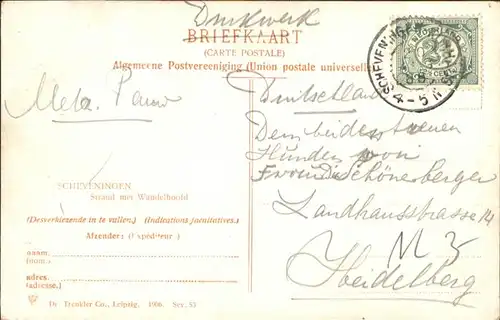 Drukwerk
BRIEFKAART
(CARTE POSTALE)
Algemeene Postvereeniging (Union postale universelle
SCHEVENINGEN
4-5 N
NEDERLAND
2½ CENT
Meta.
Deutschland
Dem beidestreuen
Hunden von
Freundschönerberger
Landhausstrasse 14
Heidelberg
M 3
SCHEVENINGEN
Strand met Wandelhoofd
(Desverkiezende in te vullen.) (Indications facultatives.)
Afzender: (Expéditeur.)
naam.
(nom.)
adres.
(adresse.)
Dr. Trenkler Co., Leipzig. 1906. Sev. 53